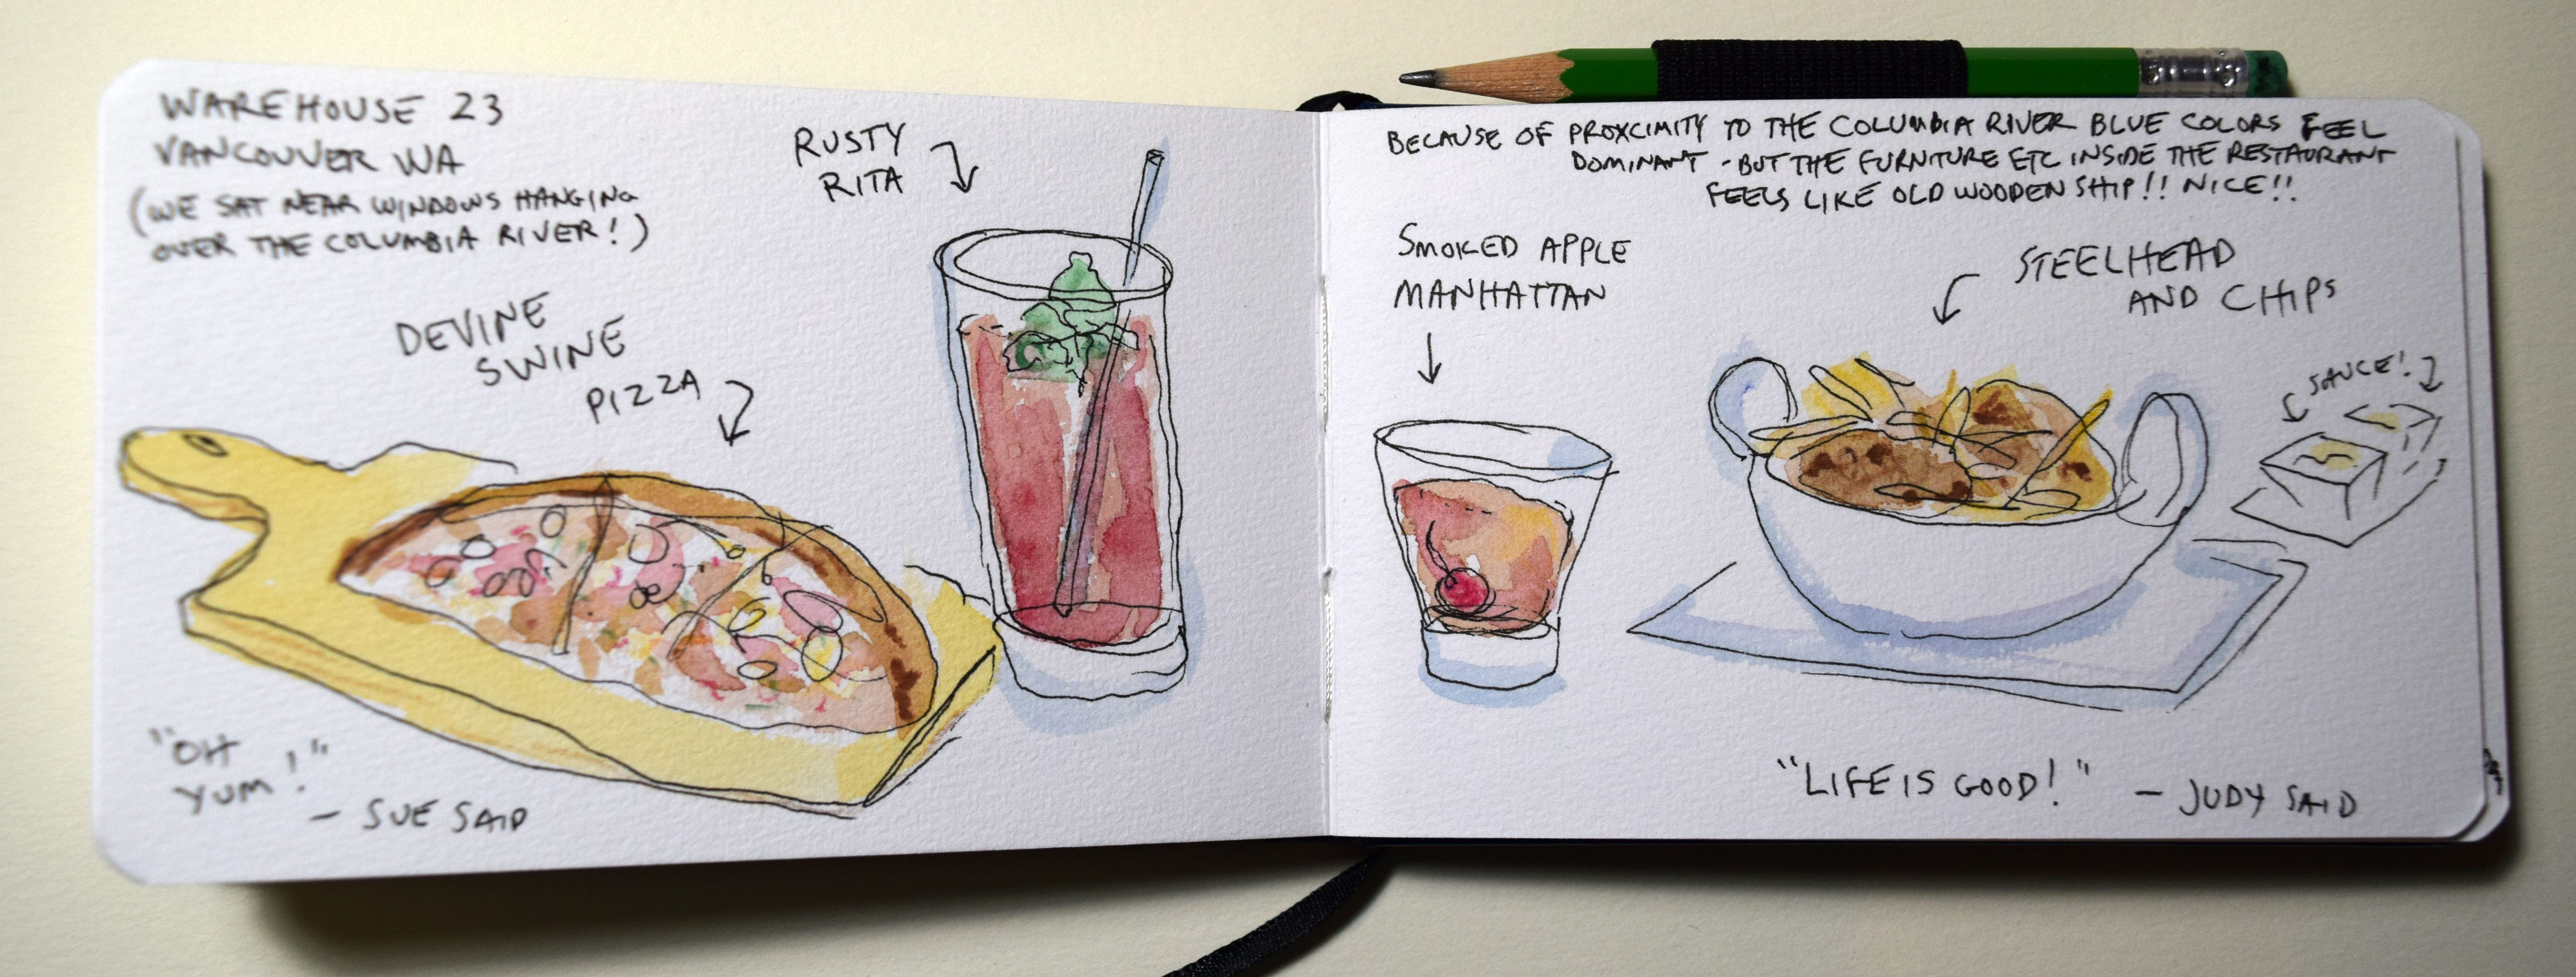 WAREHOUSE 23
VANCOUVER WA
(WE SAT NEAR WINDOWS HANGING
OVER THE COLUMBIA RIVER!)
RUSTY
RITA
DEVINE
SWINE
PIZZA
"OH
YUM!"
- SUE SAID
BECAUSE OF PROXCIMITY TO THE COLUMBIA RIVER BLUE COLORS FEEL
DOMINANT - BUT THE FURNITURE ETC INSIDE THE RESTAURANT
FEELS LIKE OLD WOODEN SHIP!! NICE!!
SMOKED APPLE
MANHATTAN
STEELHEAD
AND CHIPS
SAUCE!
"LIFE IS GOOD!" - JUDY SAID